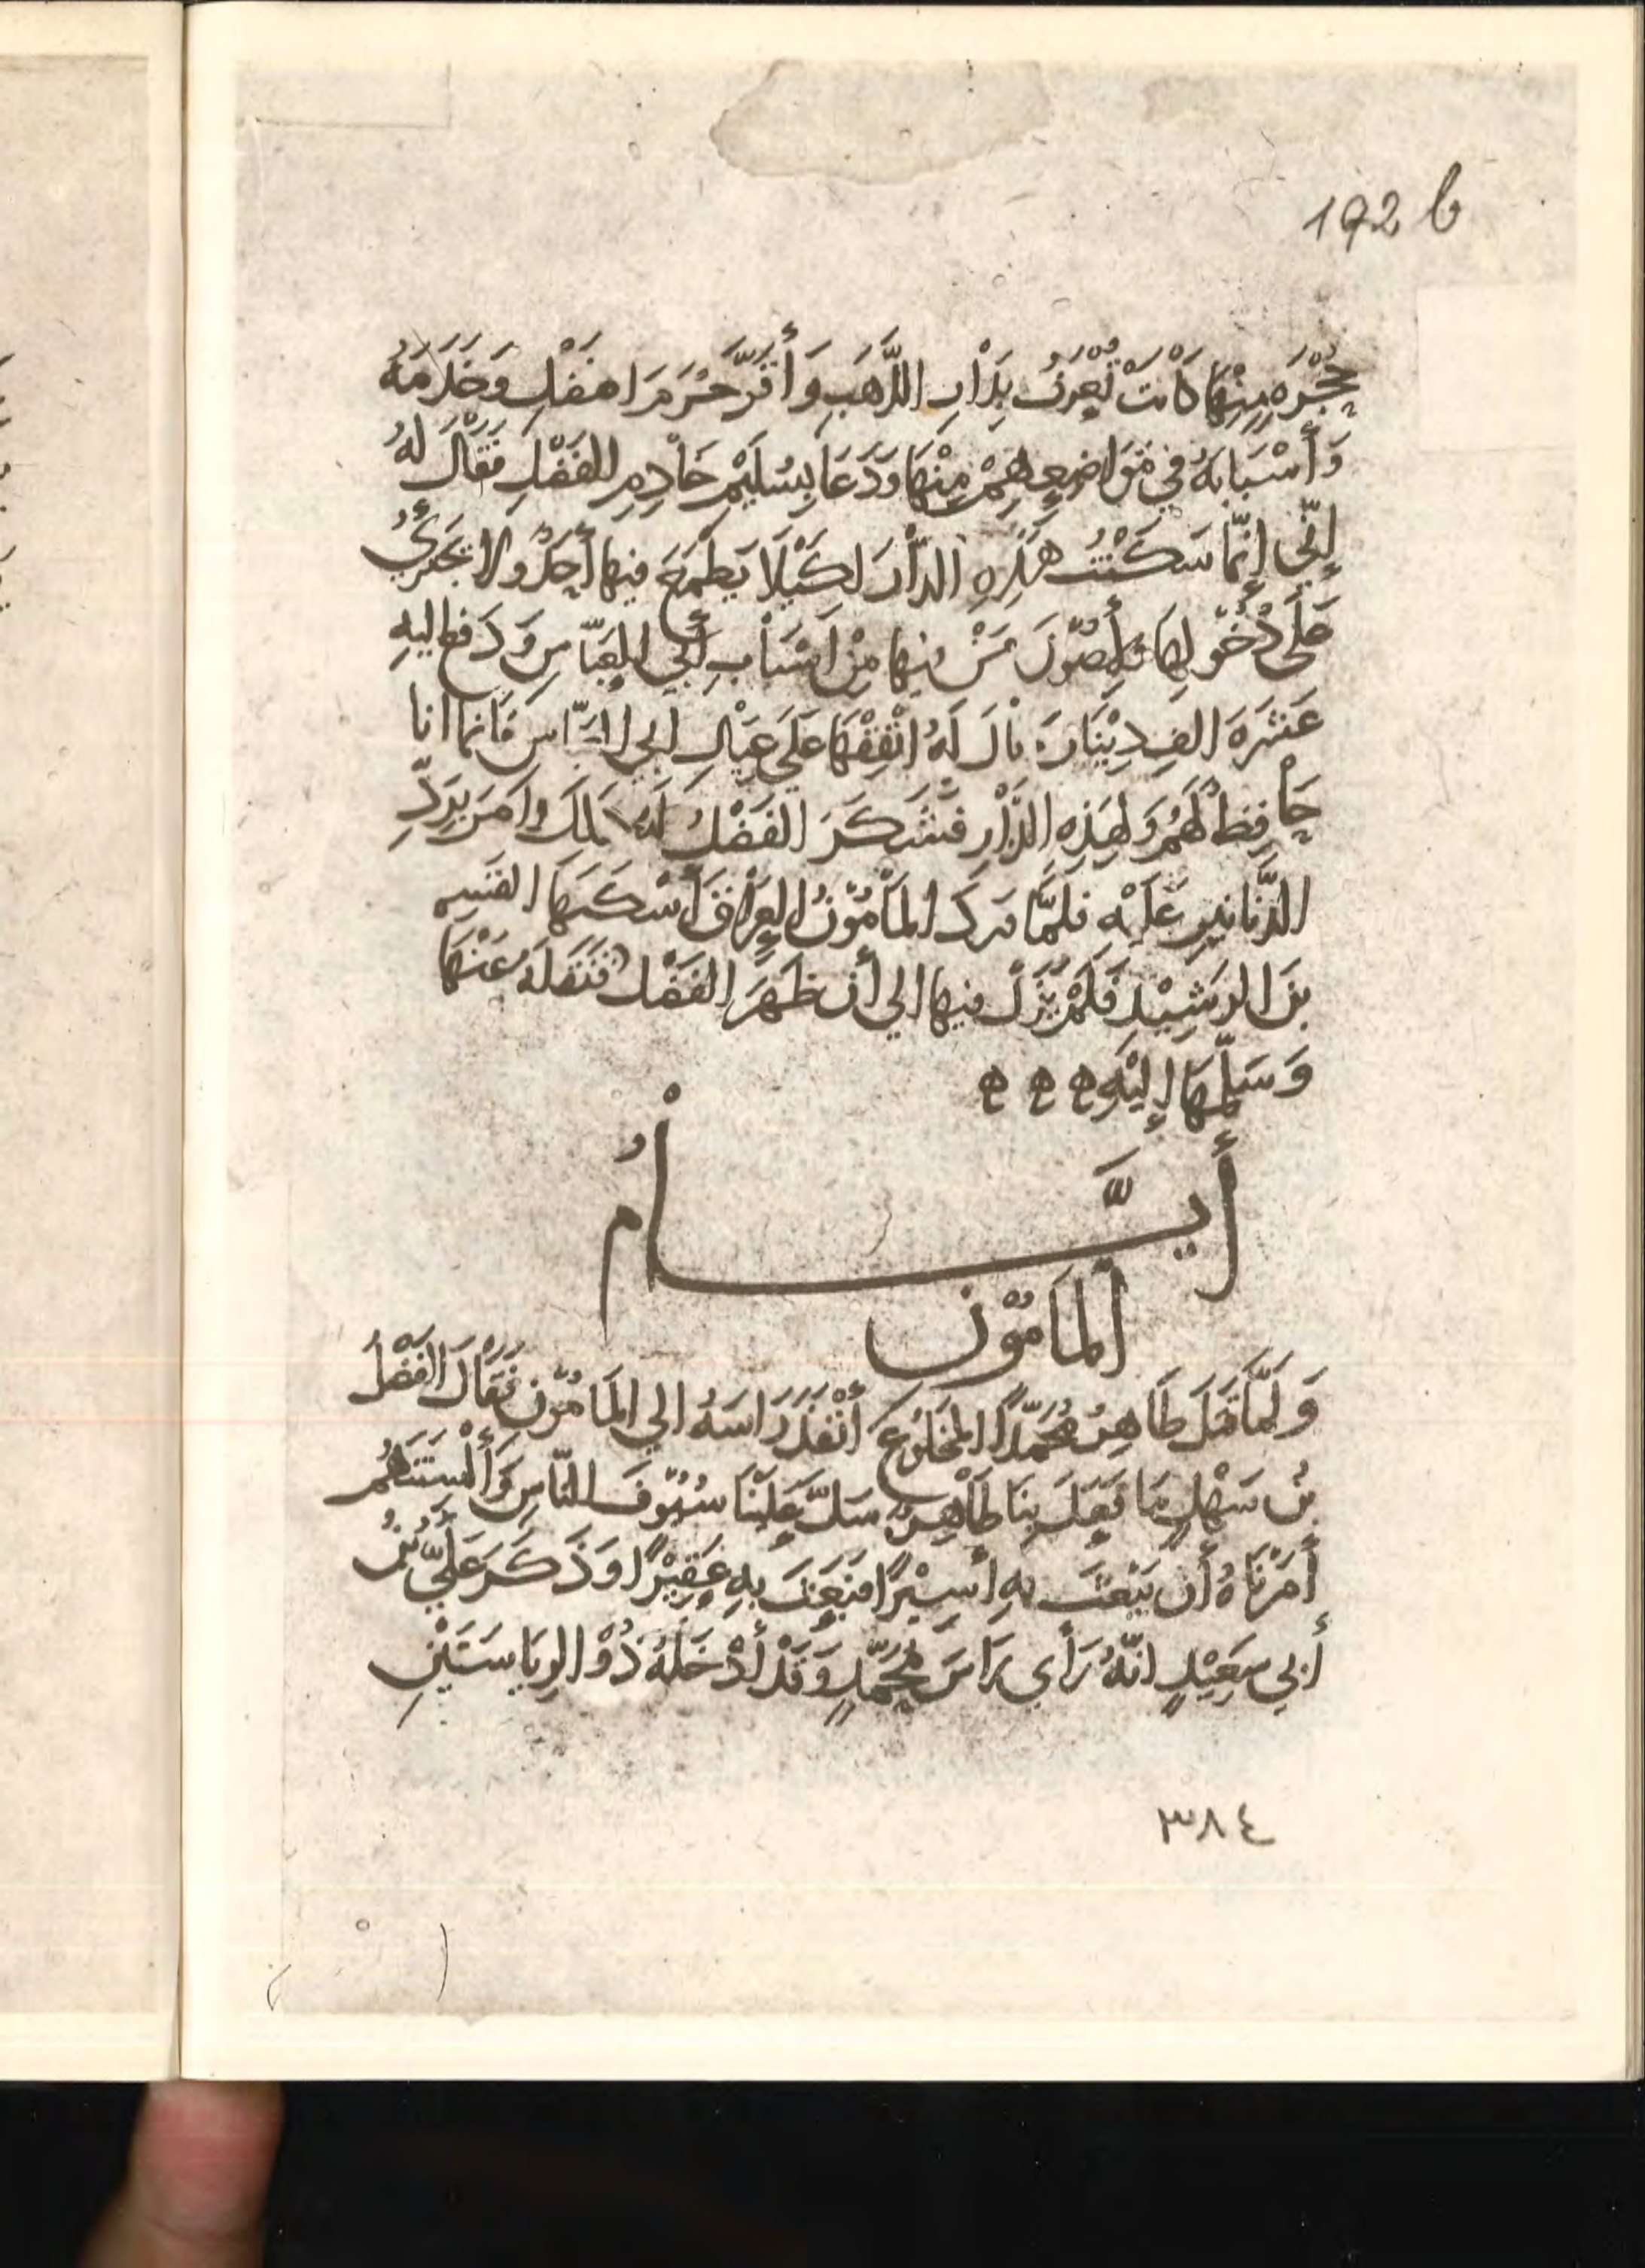 192 b
حُجْرَةٍ مِنْهَا كَانَتْ تُعْرَفُ بِدَارِ الذَّهَبِ وَأَقَرَّ حُرَمَ الفضْلِ وَخَدَمَهُ
وَأَسْبَابَهُ فِي مَوَاضِعِهِمْ مِنْهَا وَدَعَا بِسُلَيْمٍ خَادِمِ الفَضْلِ فَقَالَ لَهُ
إِنِّي إِنَّمَا سَكَنْتُ هَذِهِ الدَّارَ لِكَيْلَا يَطْمَعَ فيها أَحَدٌ ولا يَجْتَرِئُ
عَلَى دُخُولِهَا وَلِأَصُونَ مَنْ فيها مِنْ أَسْبَابِ أَبِي العَبَّاسِ وَدَفع اليهِ
عَشَرَةَ الفِ دِيْنَارٍ وقالَ لَهُ انْفِقْهَا عَلَى عِيَالِ ابي العَبَّاسِ فَانما انا
حَافِظٌ لَهُمْ وَلِهَذِهِ الدَّارِ فَشَكَرَ الفَضْلُ لَهُ ذلِكَ وامَرَ بِرَدِّ
الدَّنَانِيرِ عَلَيْهِ فلمَّا وَرَدَ المَأمُوْنُ العِرَاقَ أَسْكَنَهَا القَاسِم
بنَ الرَشِيْدِ فَلَمْ يَزَلْ فيها الي أن ظَهَرَ الفَضْلُ فَنَقَلَهُ عَنْهَا
وَسَلَّمَهَا إِلَيْهِ ه ه ه
أَيَّــامُ
المَأمُوْن
وَلَمَّا قَتَلَ طَاهِرٌ مُحَمَّدًا المَخْلُوعَ أَنْفَذَ رَاسَهُ الي المَامُوْنِ فَقَالَ الفَضْلُ
بْنُ سَهْلٍ مَا فَعَلَ بِنَا طَاهِرٌ سَلَّ عَلَيْنَا سُيُوفَ النَّاسِ وَأَلْسِنَتَهُم
أَمَرْنَاهُ أَن يَبْعَثَ بِهِ أَسِيْرًا فبَعَثَ بِهِ عَقِيْرًا وَذَكَرَ عَلِيُّ بْنُ
أَبِي سَعِيْدٍ انَّهُ رَأَي رَاسَ مُحَمَّدٍ وَقَدْ أَدْخَلَهُ ذُوْ الرِيَاسَتَيْنِ
٣٨٤